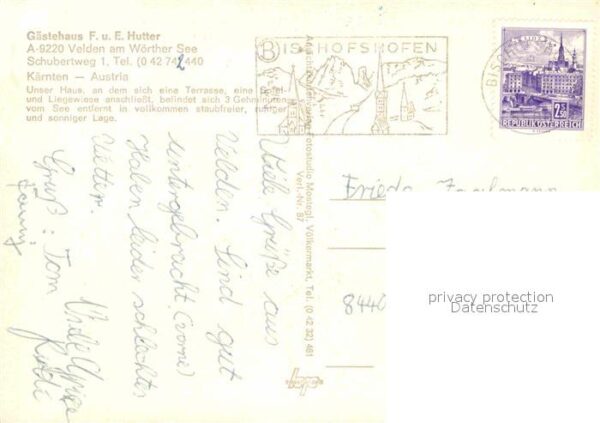 Gästehaus F. u. E. Hutter
A-9220 Velden am Wörther See
Schubertweg 1, Tel. (0 42 74) 2 440
Kärnten — Austria
Unser Haus, an dem sich eine Terrasse, eine
und Liegewiese anschließt, befindet sich 3 Gehminuten
vom See entfernt in vollkommen staubfreier, ruhiger
und sonniger Lage.
BISCHOFSHOFEN
LINZ
2.50
REPUBLIK ÖSTERREICH
Fotostudio Mostegl, Völkermarkt, Tel. (0 42 32) 461
Verl.-Nr. 87
Viele Grüße aus
Velden. Sind gut
untergebracht. (vorne)
Haben leider schlechtes
Wetter.
Gruß: Tom
Viele Grüße
Frieda
privacy protection
Datenschutz